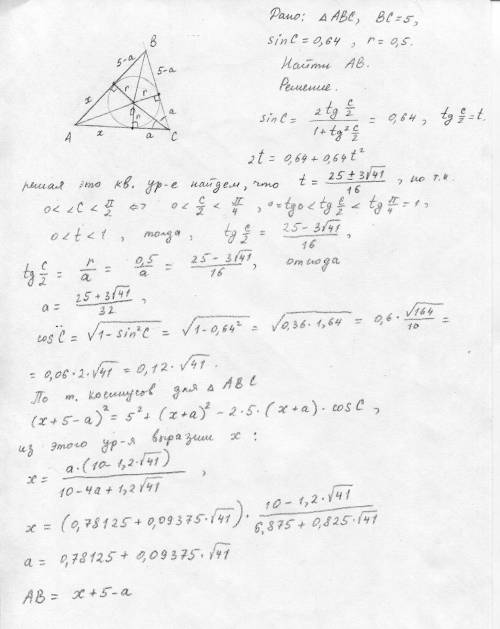 B
5-a
5-a
x
r
r
a
O
r
A
x
a
C
Дано: △ ABC, BC=5,
sinC=0,64, r=0,5.
Найти AB.
Решение.
sinC = 2tg c/2 / 1+tg² c/2 = 0,64, tg c/2 = t.
2t = 0,64+0,64t²
решая это кв. ур-е найдем, что t = 25±3√41 / 16, но т.к.
0<∠C<π/2 ⇔ 0<c/2<π/4, 0=tg0<tg c/2<tg π/4=1,
0<t<1, тогда, tg c/2 = 25-3√41 / 16,
tg c/2 = r/a = 0,5/a = 25-3√41 / 16, откуда
a = 25+3√41 / 32,
cosC = √1-sin²C = √1-0,64² = √0,36·1,64 = 0,6·√164/10 =
= 0,06·2√41 = 0,12·√41.
По т. косинусов для △ ABC
(x+5-a)² = 5²+(x+a)²-2·5·(x+a)·cosC,
из этого ур-я выразим x:
x = a·(10-1,2·√41) / 10-4a+1,2√41,
x = (0,78125+0,09375·√41)· 10-1,2·√41 / 6,875+0,825·√41
a = 0,78125+0,09375√41
AB = x+5-a